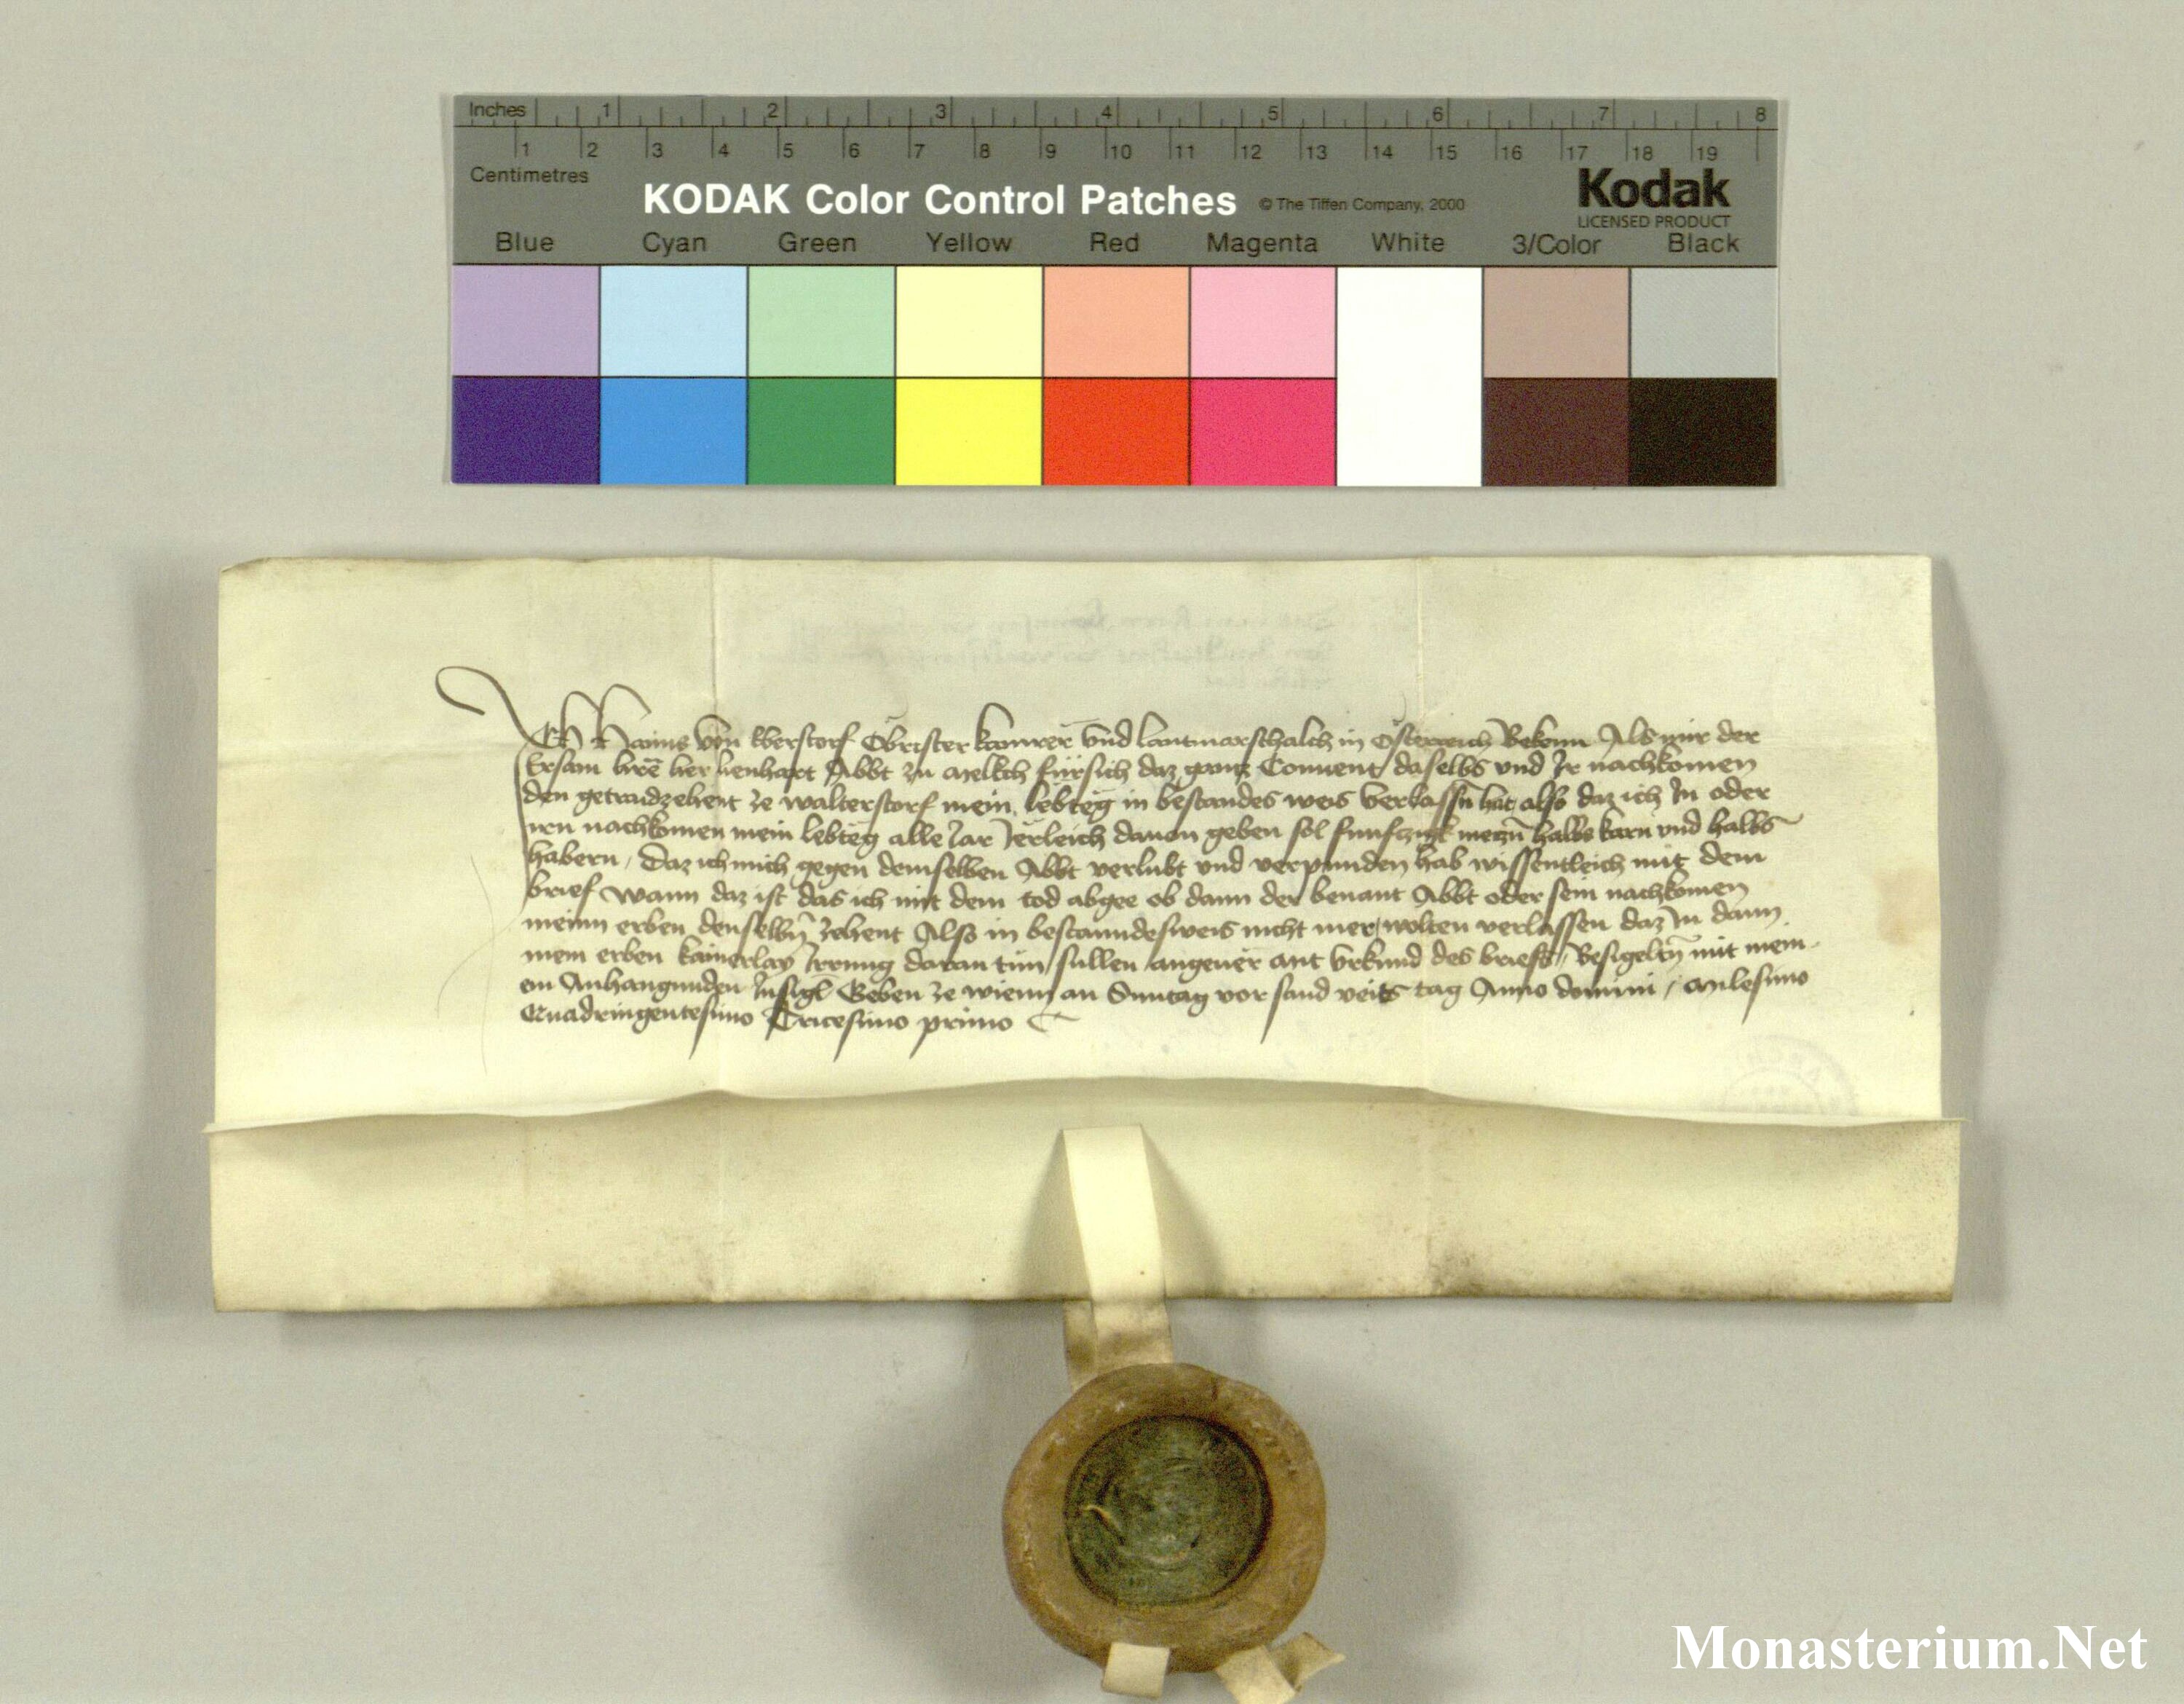 Inches 1 2 3 4 5 6 7 8
1 2 3 4 5 6 7 8 9 10 11 12 13 14 15 16 17 18 19
Centimetres
KODAK Color Control Patches © The Tiffen Company, 2000 Kodak
LICENSED PRODUCT
Blue Cyan Green Yellow Red Magenta White 3/Color Black
Ich Hanns von Eberstorf Obrister kamrer vnd lantmarschalch in Osterreich Bekenn Als mir der
Ersam herr her lienhart Abbt zu Melkch für sich daz gantz Conuent daselbs vnd Ir nachkomen
den getraidzehent ze walterstorf mein lebteg in bestandes weis verlassn hat also daz ich In oder
irn nachkomen mein lebteg alle Jar Jerleich dauon geben sol funfczigk meczn halbs korn vnd halbs
habern / Daz ich mich gegen demselben Abbt verlubt vnd verpunden hab wissentleich mit dem
brief wann daz ist das ich mit dem tod abgee ob dann der benant Abbt oder sein nachkomen
meinn erben denselbn zehent Also in bestanndesweis nicht mer wolten verlassen daz In dann
mein erben kainerlay Irrung daran tun sullen angeuer mit vrkund des briefs / Besigeltn mit mein
em Anhangunden Insigl Geben ze wienn an Suntag vor sand veits tag Anno domini / Milesimo
Quadringentesimo Tricesimo primo
Monasterium.Net